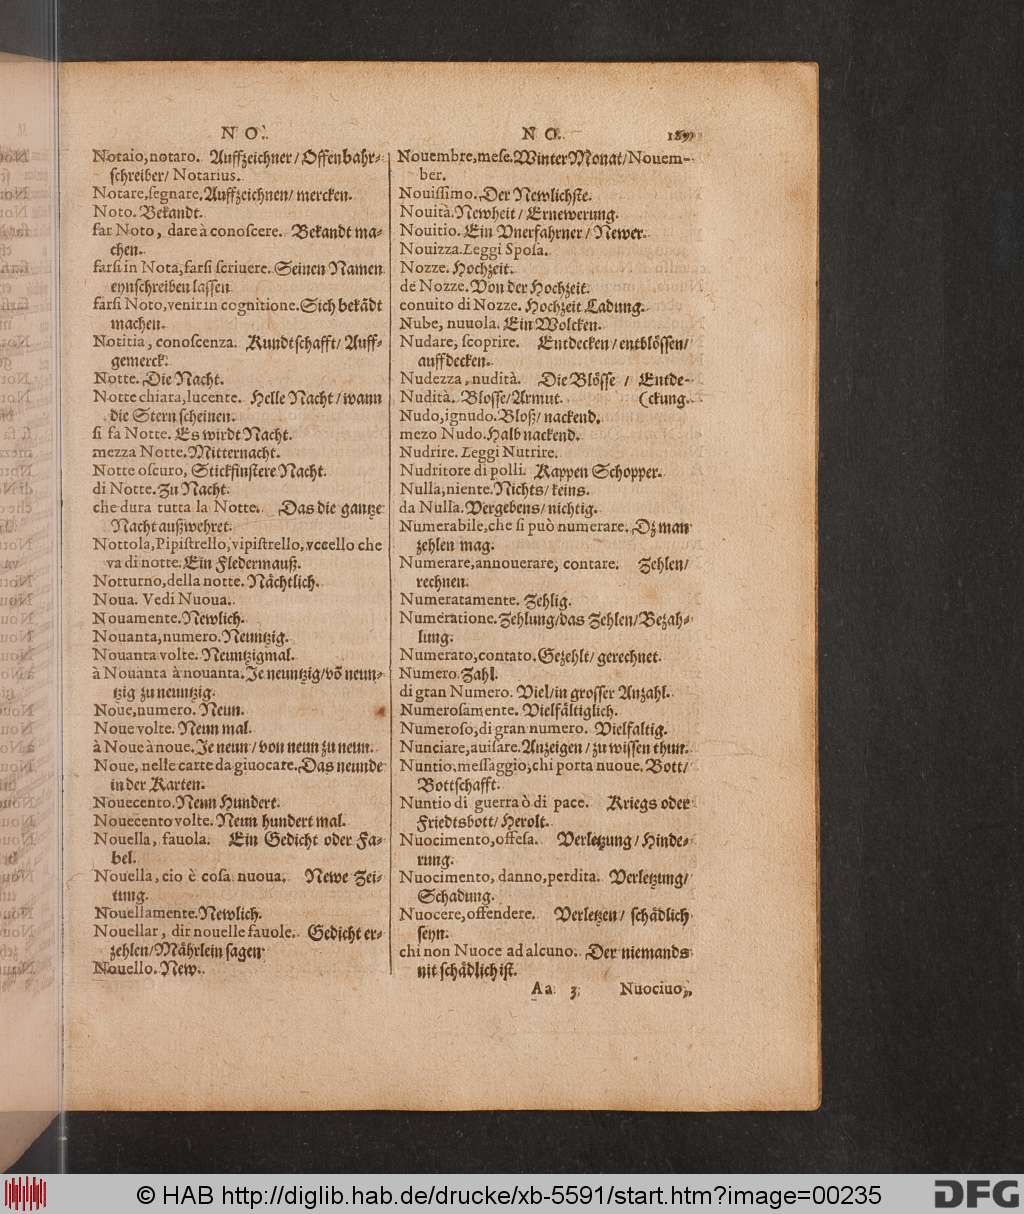 NO.
Notaio, notaro. Auffzeichner/ Offenbahr-
schreiber/ Notarius.
Notare, segnare. Auffzeichnen/ mercken.
Noto. Bekandt.
far Noto, dare à conoscere. Bekandt ma-
chen.
farsi in Nota, farsi scriuere. Seinen Namen
eynschreiben lassen
farsi Noto, venir in cognitione. Sich bekãdt
machen.
Notitia, conoscenza. Kundtschafft/ Auff-
gemerck.
Notte. Die Nacht.
Notte chiara, lucente. Helle Nacht/ wann
die Stern scheinen.
si fa Notte. Es wirdt Nacht.
mezza Notte. Mitternacht.
Notte oscuro, Stickfinstere Nacht.
di Notte. Zu Nacht.
che dura tutta la Notte. Das die gantze
Nacht außwehret.
Nottola, Pipistrello, vipistrello, vccello che
va di notte. Ein Fledermauß.
Notturno, della notte. Nächtlich.
Noua. Vedi Nuoua.
Nouamente. Newlich.
Nouanta, numero. Neuntzig.
Nouanta volte. Neuntzigmal.
à Nouanta à nouanta. Je neuntzig/ võ neun-
tzig zu neuntzig.
Noue, numero. Neun.
Noue volte. Neun mal.
à Noue à noue. Je neun/ von neun zu neun.
Noue, nelle carte da giuocare. Das neunde
in der Karten.
Nouecento. Neun Hundert.
Nouecento volte. Neun hundert mal.
Nouella, fauola. Ein Gedicht oder Fa-
bel.
Nouella, cio è cosa nuoua. Newe Zei-
tung.
Nouellamente. Newlich.
Nouellar, dir nouelle fauole. Gedicht er-
zehlen/ Mährlein sagen
Nouello. New.
NO. 189
Nouembre, mese. Winter Monat/ Nouem-
ber.
Nouissimo. Der Newlichste.
Nouità. Newheit/ Ernewerung.
Nouitio. Ein Vnerfahrner/ Newer.
Nouizza. Leggi Sposa.
Nozze. Hochzeit.
de Nozze. Von der Hochzeit.
conuito di Nozze. Hochzeit Ladung.
Nube, nuuola. Ein Wolcken.
Nudare, scoprire. Entdecken/ entblössen/
auffdecken.
Nudezza, nudità. Die Blösse / Entde-
Nudità. Blosse/ Armut. (ckung.
Nudo, ignudo. Bloß/ nackend.
mezo Nudo. Halb nackend.
Nudrire. Leggi Nutrire.
Nudritore di polli. Kappen Schopper.
Nulla, niente. Nichts/ keins.
da Nulla. Vergebens/ nichtig.
Numerabile, che si può numerare. Dz man
zehlen mag.
Numerare, annouerare, contare. Zehlen/
rechnen.
Numeratamente. Zehlig.
Numeratione. Zehlung/ das Zehlen/ Bezah-
lung.
Numerato, contato. Gezehlt/ gerechnet.
Numero. Zahl.
di gran Numero. Viel/ in grosser Anzahl.
Numerosamente. Vielfältiglich.
Numeroso, di gran numero. Vielfaltig.
Nunciare, auisare. Anzeigen/ zu wissen thun.
Nuntio, messaggio, chi porta nuoue. Bott/
Bottschafft.
Nuntio di guerra ò di pace. Kriegs oder
Friedtsbott/ Herolt.
Nuocimento, offesa. Verletzung/ Hinde-
rung.
Nuocimento, danno, perdita. Verletzung/
Schadung.
Nuocere, offendere. Verletzen/ schädlich
seyn.
chi non Nuoce ad alcuno. Der niemands
nit schädlich ist.
Aa 3 Nuociuo,
© HAB http://diglib.hab.de/drucke/xb-5591/start.htm?image=00235
DFG